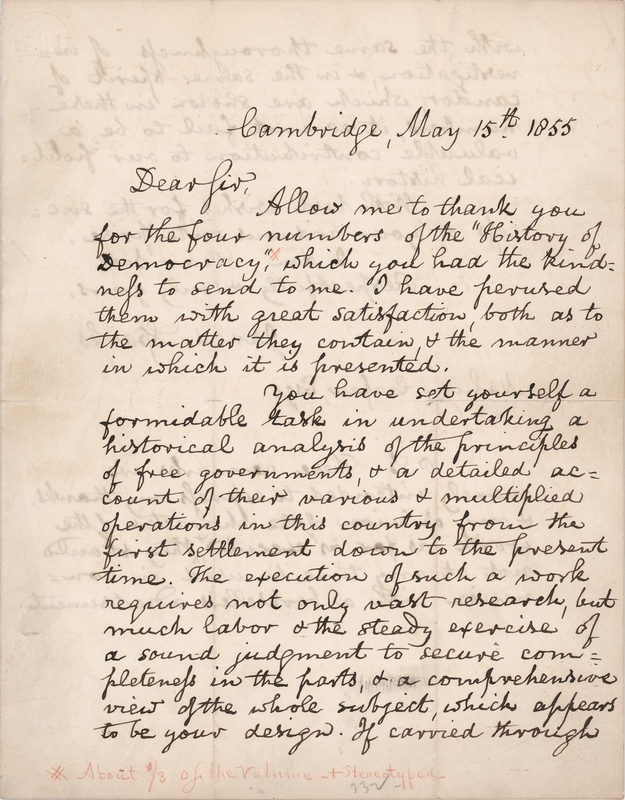 Cambridge, May 15th 1855
Dear Sir,
Allow me to thank you
for the four numbers of the "History of
Democracy",* which you had the kind=
ness to send to me. I have perused
them with great satisfaction, both as to
the matter they contain, & the manner
in which it is presented.
You have set yourself a
formidable task in undertaking a
historical analysis of the principles
of free governments, & a detailed ac=
count of their various & multiplied
operations in this country from the
first settlement down to the present
time. The execution of such a work
requires not only vast research, but
much labor & the steady exercise of
a sound judgment to secure com=
pleteness in the parts, & a comprehensive
view of the whole subject, which appears
to be your design. If carried through
* About 2/3 of the Volume - + Stereotyped
232